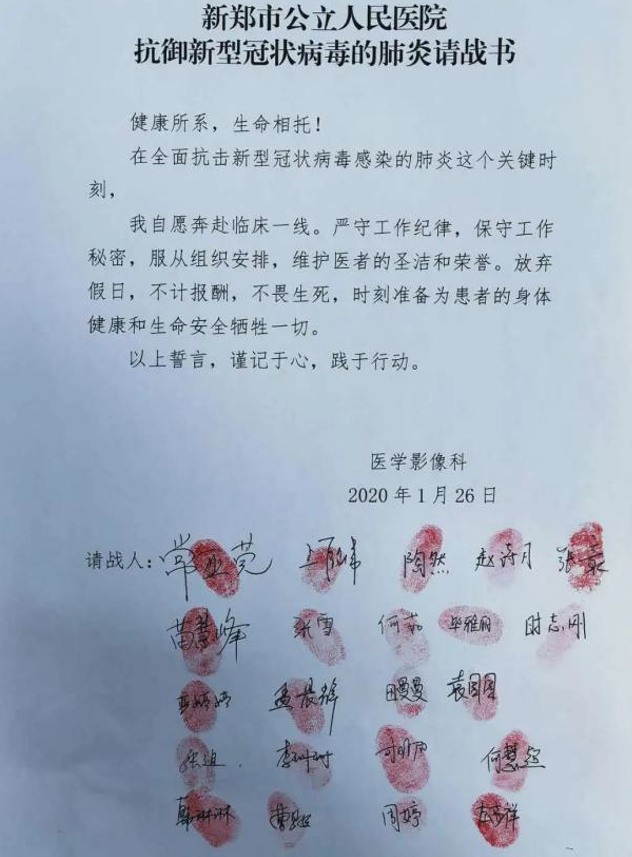 新郑市公立人民医院
抗御新型冠状病毒的肺炎请战书
健康所系，生命相托！
在全面抗击新型冠状病毒感染的肺炎这个关键时
刻，
我自愿奔赴临床一线。严守工作纪律，保守工作
秘密，服从组织安排，维护医者的圣洁和荣誉。放弃
假日，不计报酬，不畏生死，时刻准备为患者的身体
健康和生命安全牺牲一切。
以上誓言，谨记于心，践于行动。
医学影像科
2020年1月26日
请战人：常亚菀 陶然 赵诗月 张豪
苗慧峰 张雪 何茹 毕雅丽 时志刚
孟晨辉 田曼曼 袁园园
李珂珂 何慧超
韩琳琳 曹聪 周婷